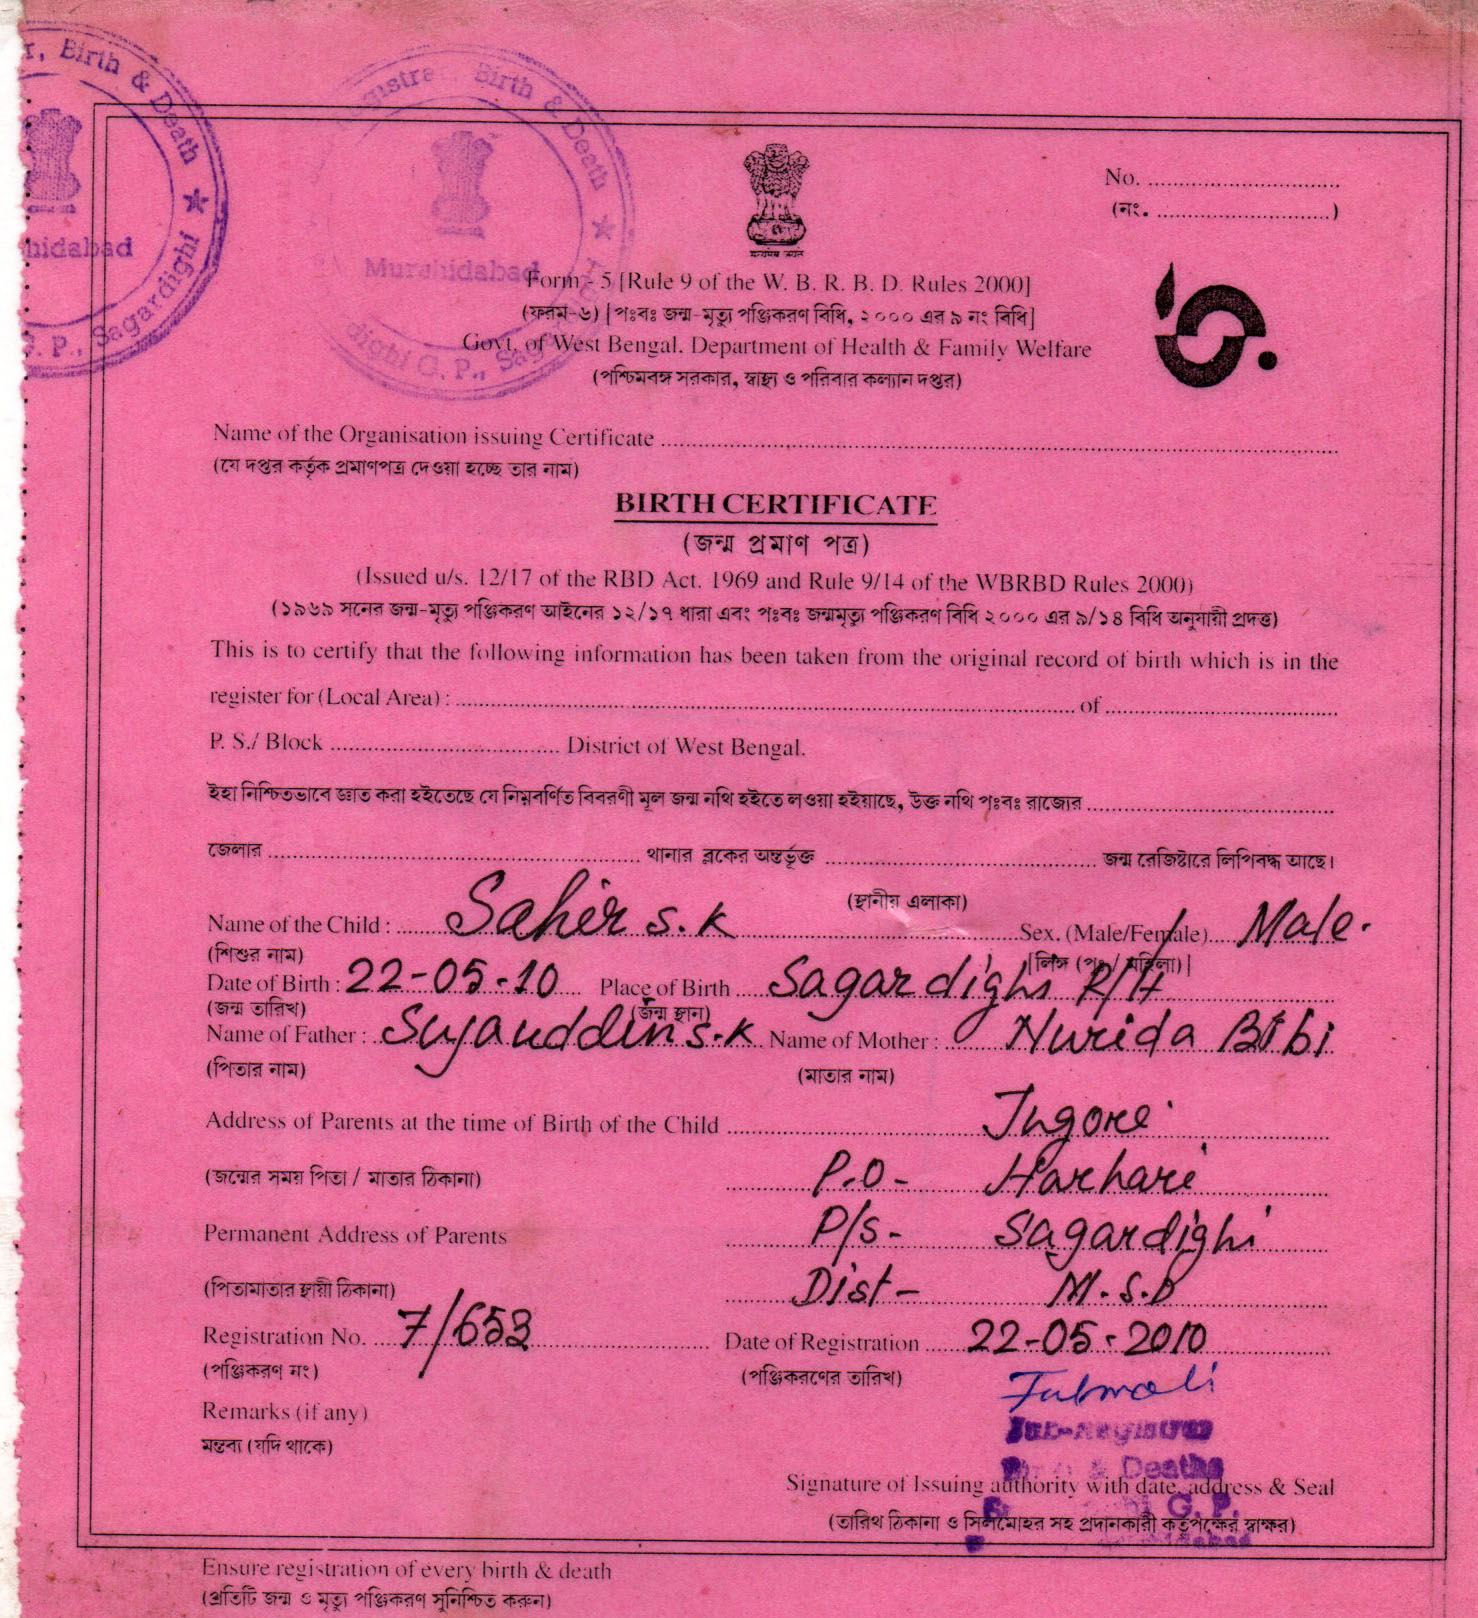 Birth & Death ★
hidabad
G. P., Sagardighi
Registrar, Birth & Death ★
Murshidabad
dighi G. P., Sagar
No. ................................
(নং. ................................)
Form - 5 [Rule 9 of the W. B. R. B. D. Rules 2000]
(ফরম-৬) [পঃবঃ জন্ম-মৃত্যু পঞ্জিকরণ বিধি, ২০০০ এর ৯ নং বিধি]
Govt. of West Bengal. Department of Health & Family Welfare
(পশ্চিমবঙ্গ সরকার, স্বাস্থ্য ও পরিবার কল্যান দপ্তর)
Name of the Organisation issuing Certificate ................................
(যে দপ্তর কর্তৃক প্রমাণপত্র দেওয়া হচ্ছে তার নাম)
BIRTH CERTIFICATE
(জন্ম প্রমাণ পত্র)
(Issued u/s. 12/17 of the RBD Act. 1969 and Rule 9/14 of the WBRBD Rules 2000)
(১৯৬৯ সনের জন্ম-মৃত্যু পঞ্জিকরণ আইনের ১২/১৭ ধারা এবং পঃবঃ জন্মমৃত্যু পঞ্জিকরণ বিধি ২০০০ এর ৯/১৪ বিধি অনুযায়ী প্রদত্ত)
This is to certify that the following information has been taken from the original record of birth which is in the
register for (Local Area) : ................................ of ................................
P. S./ Block ................................ District of West Bengal.
ইহা নিশ্চিতভাবে জ্ঞাত করা হইতেছে যে নিম্নবর্ণিত বিবরণী মূল জন্ম নথি হইতে লওয়া হইয়াছে, উক্ত নথি পঃবঃ রাজ্যের ................................
জেলার ................................ থানার ব্লকের অন্তর্ভূক্ত ................................ জন্ম রেজিষ্টারে লিপিবদ্ধ আছে।
(স্থানীয় এলাকা)
Name of the Child : Saher S.K Sex. (Male/Female) Male.
(শিশুর নাম) [লিঙ্গ (পুঃ / মহিলা)]
Date of Birth : 22-05-10 Place of Birth Sagardighi R/H
(জন্ম তারিখ) (জন্ম স্থান)
Name of Father : Sujauddin S.K Name of Mother : Nurida Bibi
(পিতার নাম) (মাতার নাম)
Address of Parents at the time of Birth of the Child Jugore
(জন্মের সময় পিতা / মাতার ঠিকানা) P.O- Harhari
Permanent Address of Parents P/S- Sagardighi
(পিতামাতার স্থায়ী ঠিকানা) Dist- M.S.D
Registration No. 7/653 Date of Registration 22-05-2010
(পঞ্জিকরণ নং) (পঞ্জিকরণের তারিখ)
Remarks (if any)
মন্তব্য (যদি থাকে)
Sub-Registrar
Birth & Deaths
Signature of Issuing authority with date, address & Seal
G. P.
(তারিখ ঠিকানা ও সিলমোহর সহ প্রদানকারী কর্তৃপক্ষের স্বাক্ষর)
Ensure registration of every birth & death
(প্রতিটি জন্ম ও মৃত্যু পঞ্জিকরণ সুনিশ্চিত করুন)